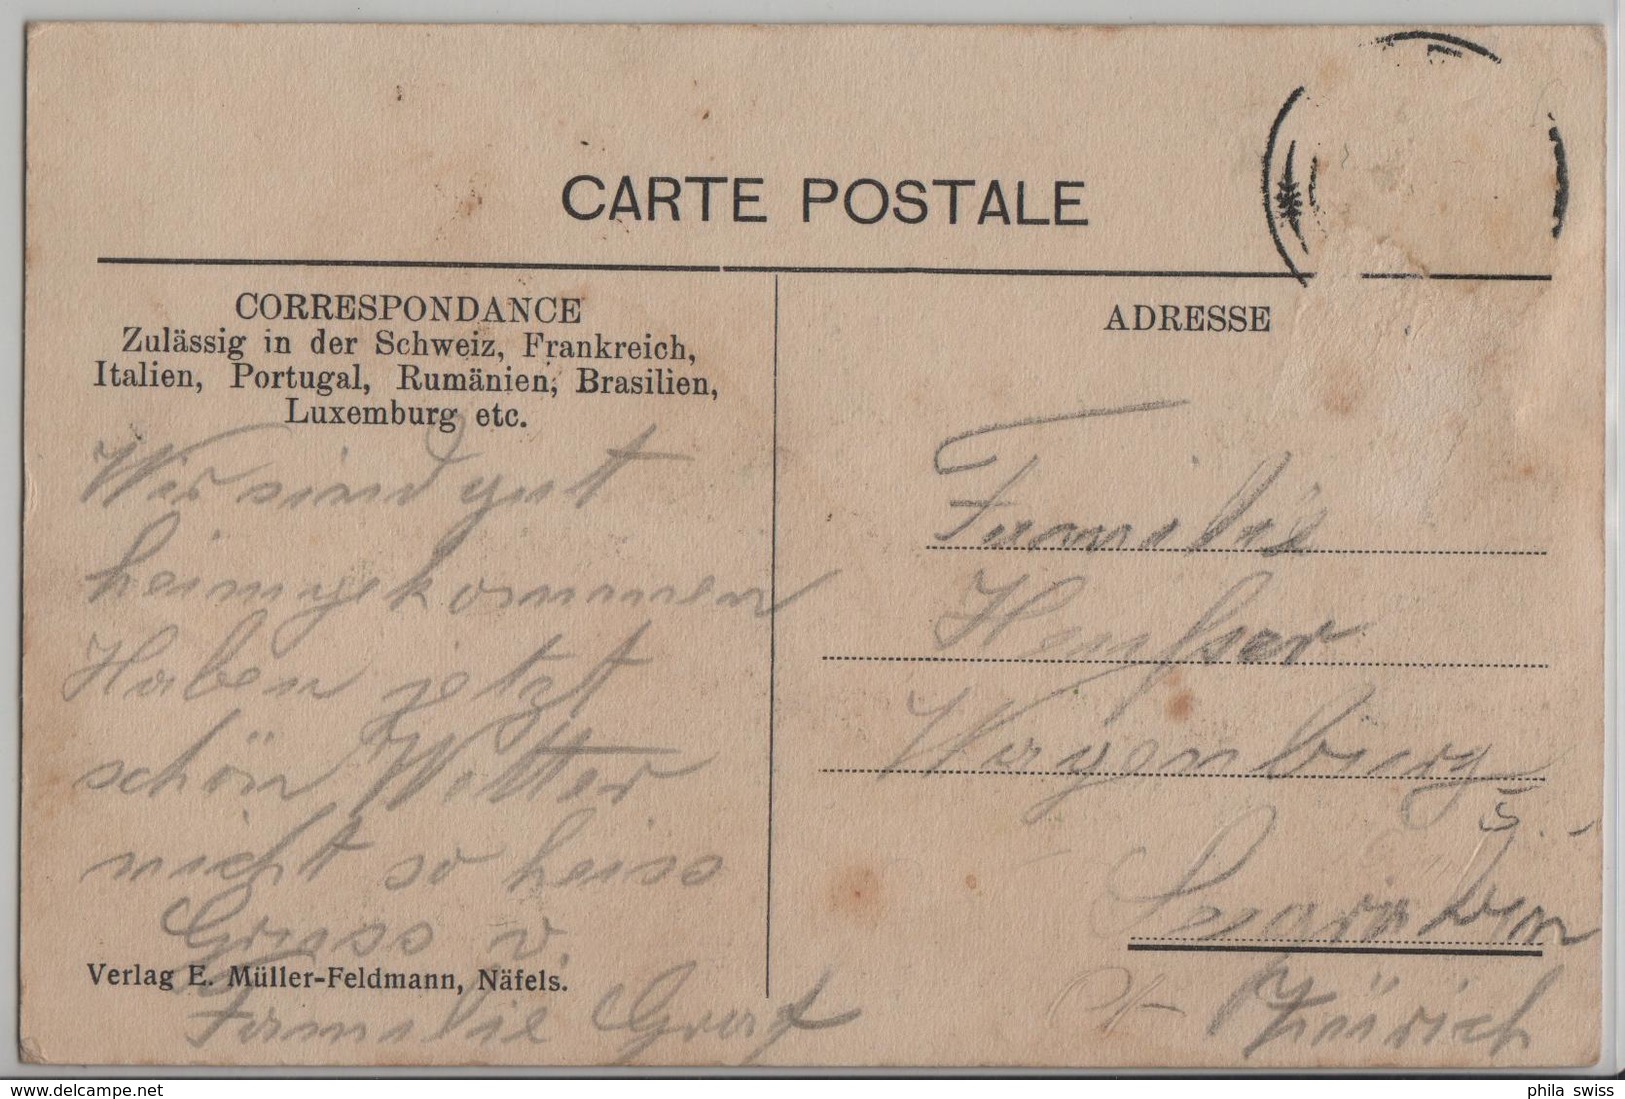 CARTE POSTALE
CORRESPONDANCE
Zulässig in der Schweiz, Frankreich,
Italien, Portugal, Rumänien, Brasilien,
Luxemburg etc.
Wir sind gut
heimgekommen
Haben jetzt
schön Wetter
nicht so heiss
Gruss v.
Verlag E. Müller-Feldmann, Näfels.
Familie Graf
ADRESSE
Familie
Wagenburg
Ct Zürich
www.delcampe.net
phila_swiss